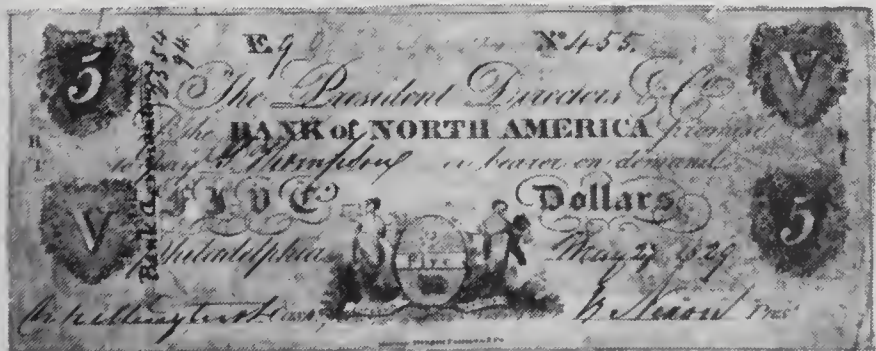 5 E 9 No 455. V
The President Directors & Co.
of the BANK of NORTH AMERICA promise
to pay Thompson or bearer on demand
V FIVE Dollars 5
Philadelphia May 27 1829
FIVE
Cash. Pres.t